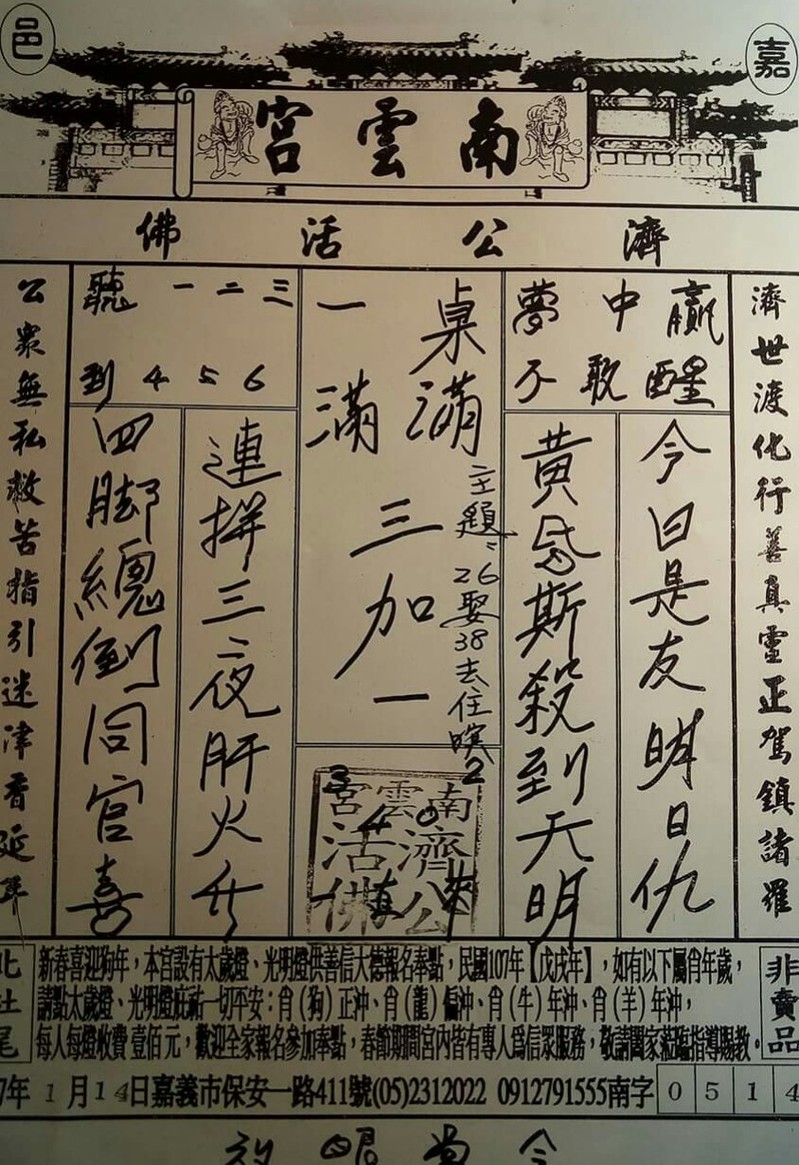 嘉邑
南雲宮
濟公活佛
濟世渡化行善真靈正駕鎮諸羅
贏中夢
醒敢不
今日是友明日仇
黃昏斯殺到天明
桌一
滿滿
三加一
主題：26娶38去住暝2
三二一聽
654到
連拼三夜肝火升
四腳總倒同官喜
公眾無私救苦指引迷津香延年
南雲宮
濟公
活佛
非賣品
新春喜迎狗年，本宮設有太歲燈、光明燈供善信大德報名奉點，民國107年【戊戌年】，如有以下屬肖年歲，
請點太歲燈、光明燈庇祐一切平安：肖（狗）正沖、肖（龍）偏沖、肖（牛）年沖、肖（羊）年沖，
每人每燈收費壹佰元，歡迎全家報名參加奉點，春節期間宮內皆有專人為信眾服務，敬請闔家蒞臨指導賜教。
北社尾
7年1月14日嘉義市保安一路411號(05)2312022 0912791555南字0514